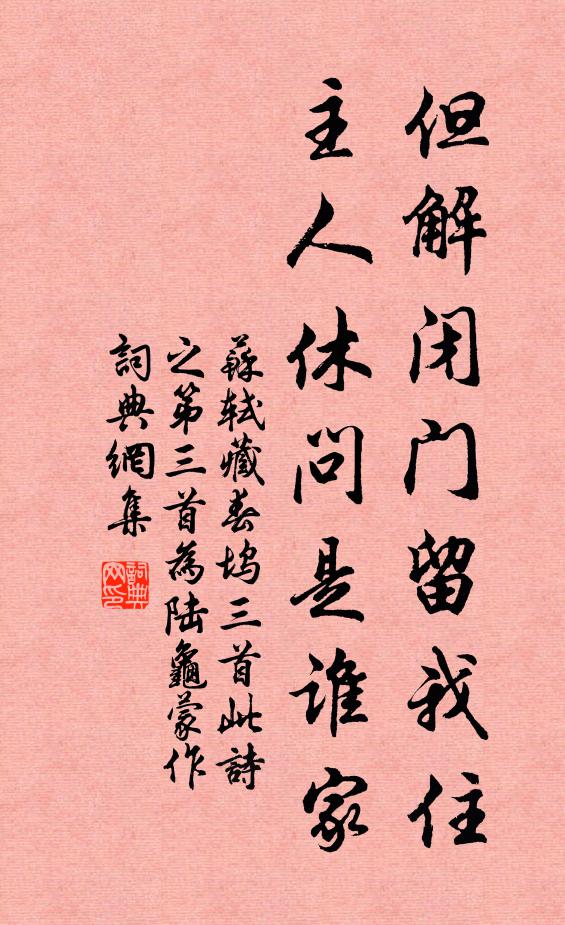 但解闭门留我住
主人休问是谁家
蘇軾藏春塢三首此詩
之第三首為陆龜蒙作
詞典網集
詞典网印